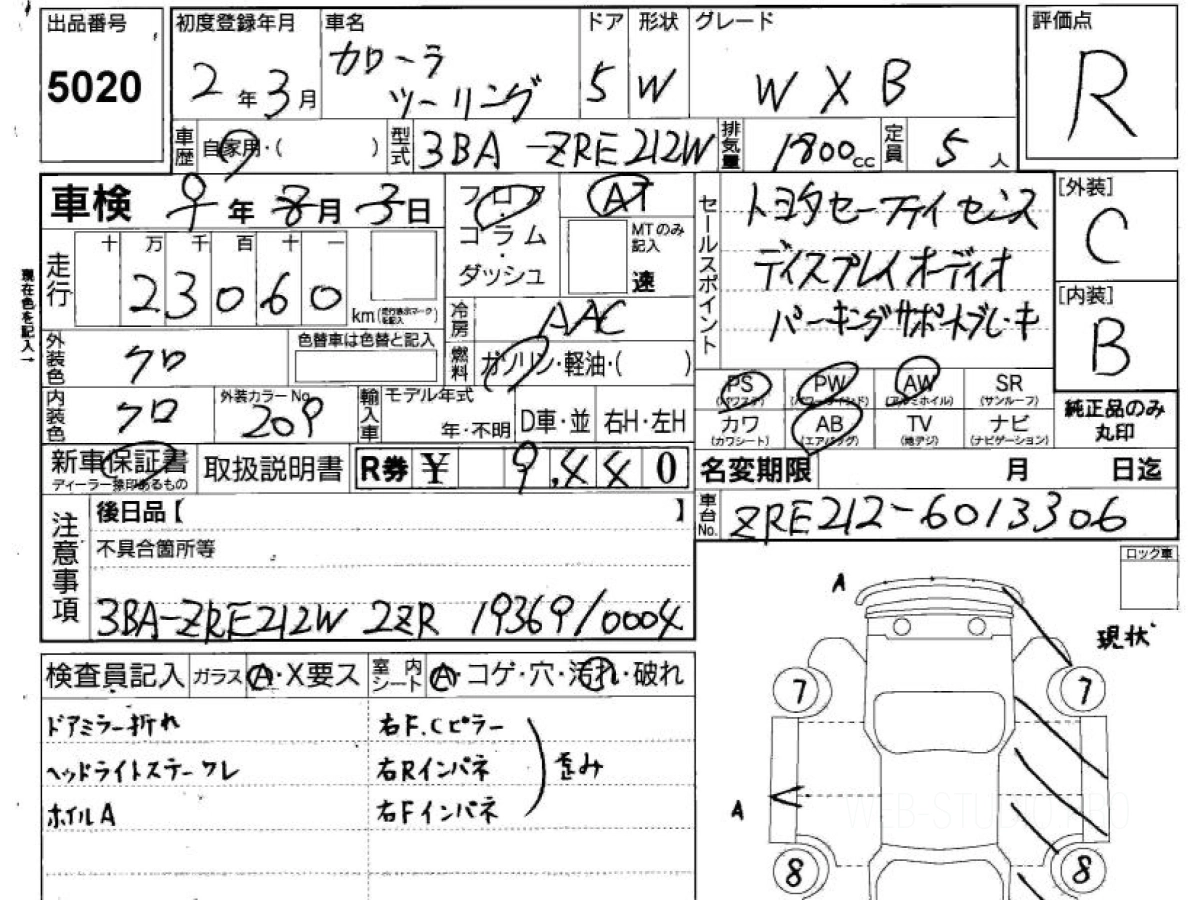 出品番号
5020
初度登録年月
2年3月
車名
カローラ
ツーリング
ドア
5
形状
W
グレード
W X B
評価点
R
車歴
自家用・( )
型式
3BA-ZRE212W
排気量
1800cc
定員
5人
車検
年8月3日
フロア
コラム
・
ダッシュ
AT
MTのみ
記入
速
セールスポイント
トヨタセーフティセンス
ディスプレイオーディオ
パーキングサポートブレーキ
[外装]
C
[内装]
B
走行
十万千百十一
23060
km
現在色を記入→
冷房
AAC
燃料
ガソリン・軽油・( )
外装色
クロ
色替車は色替と記入
内装色
クロ
外装カラーNo.
209
輸入車
モデル年式
年・不明
D車・並
右H・左H
PS
(パワステ)
PW
(パワーウインド)
AW
(アルミホイル)
SR
(サンルーフ)
カワ
(カワシート)
AB
(エアバッグ)
TV
(地デジ)
ナビ
(ナビゲーション)
純正品のみ
丸印
新車保証書
ディーラー捺印あるもの
取扱説明書
R券 ¥ 9,440
名変期限 月 日迄
車台No.
ZRE212-6013306
注意事項
後日品【 】
不具合箇所等
3BA-ZRE212W 2ZR 19369/0004
ロック車
検査員記入
ガラス
A・X要ス
室内シート
A・コゲ・穴・汚れ・破れ
ドアミラー折れ
右F.Cピラー
ヘッドライトステーワレ
右Rインパネ
歪み
ホイルA
右Fインパネ
A
現状
7
7
A
8
8
WEB-STUDIO.PRO